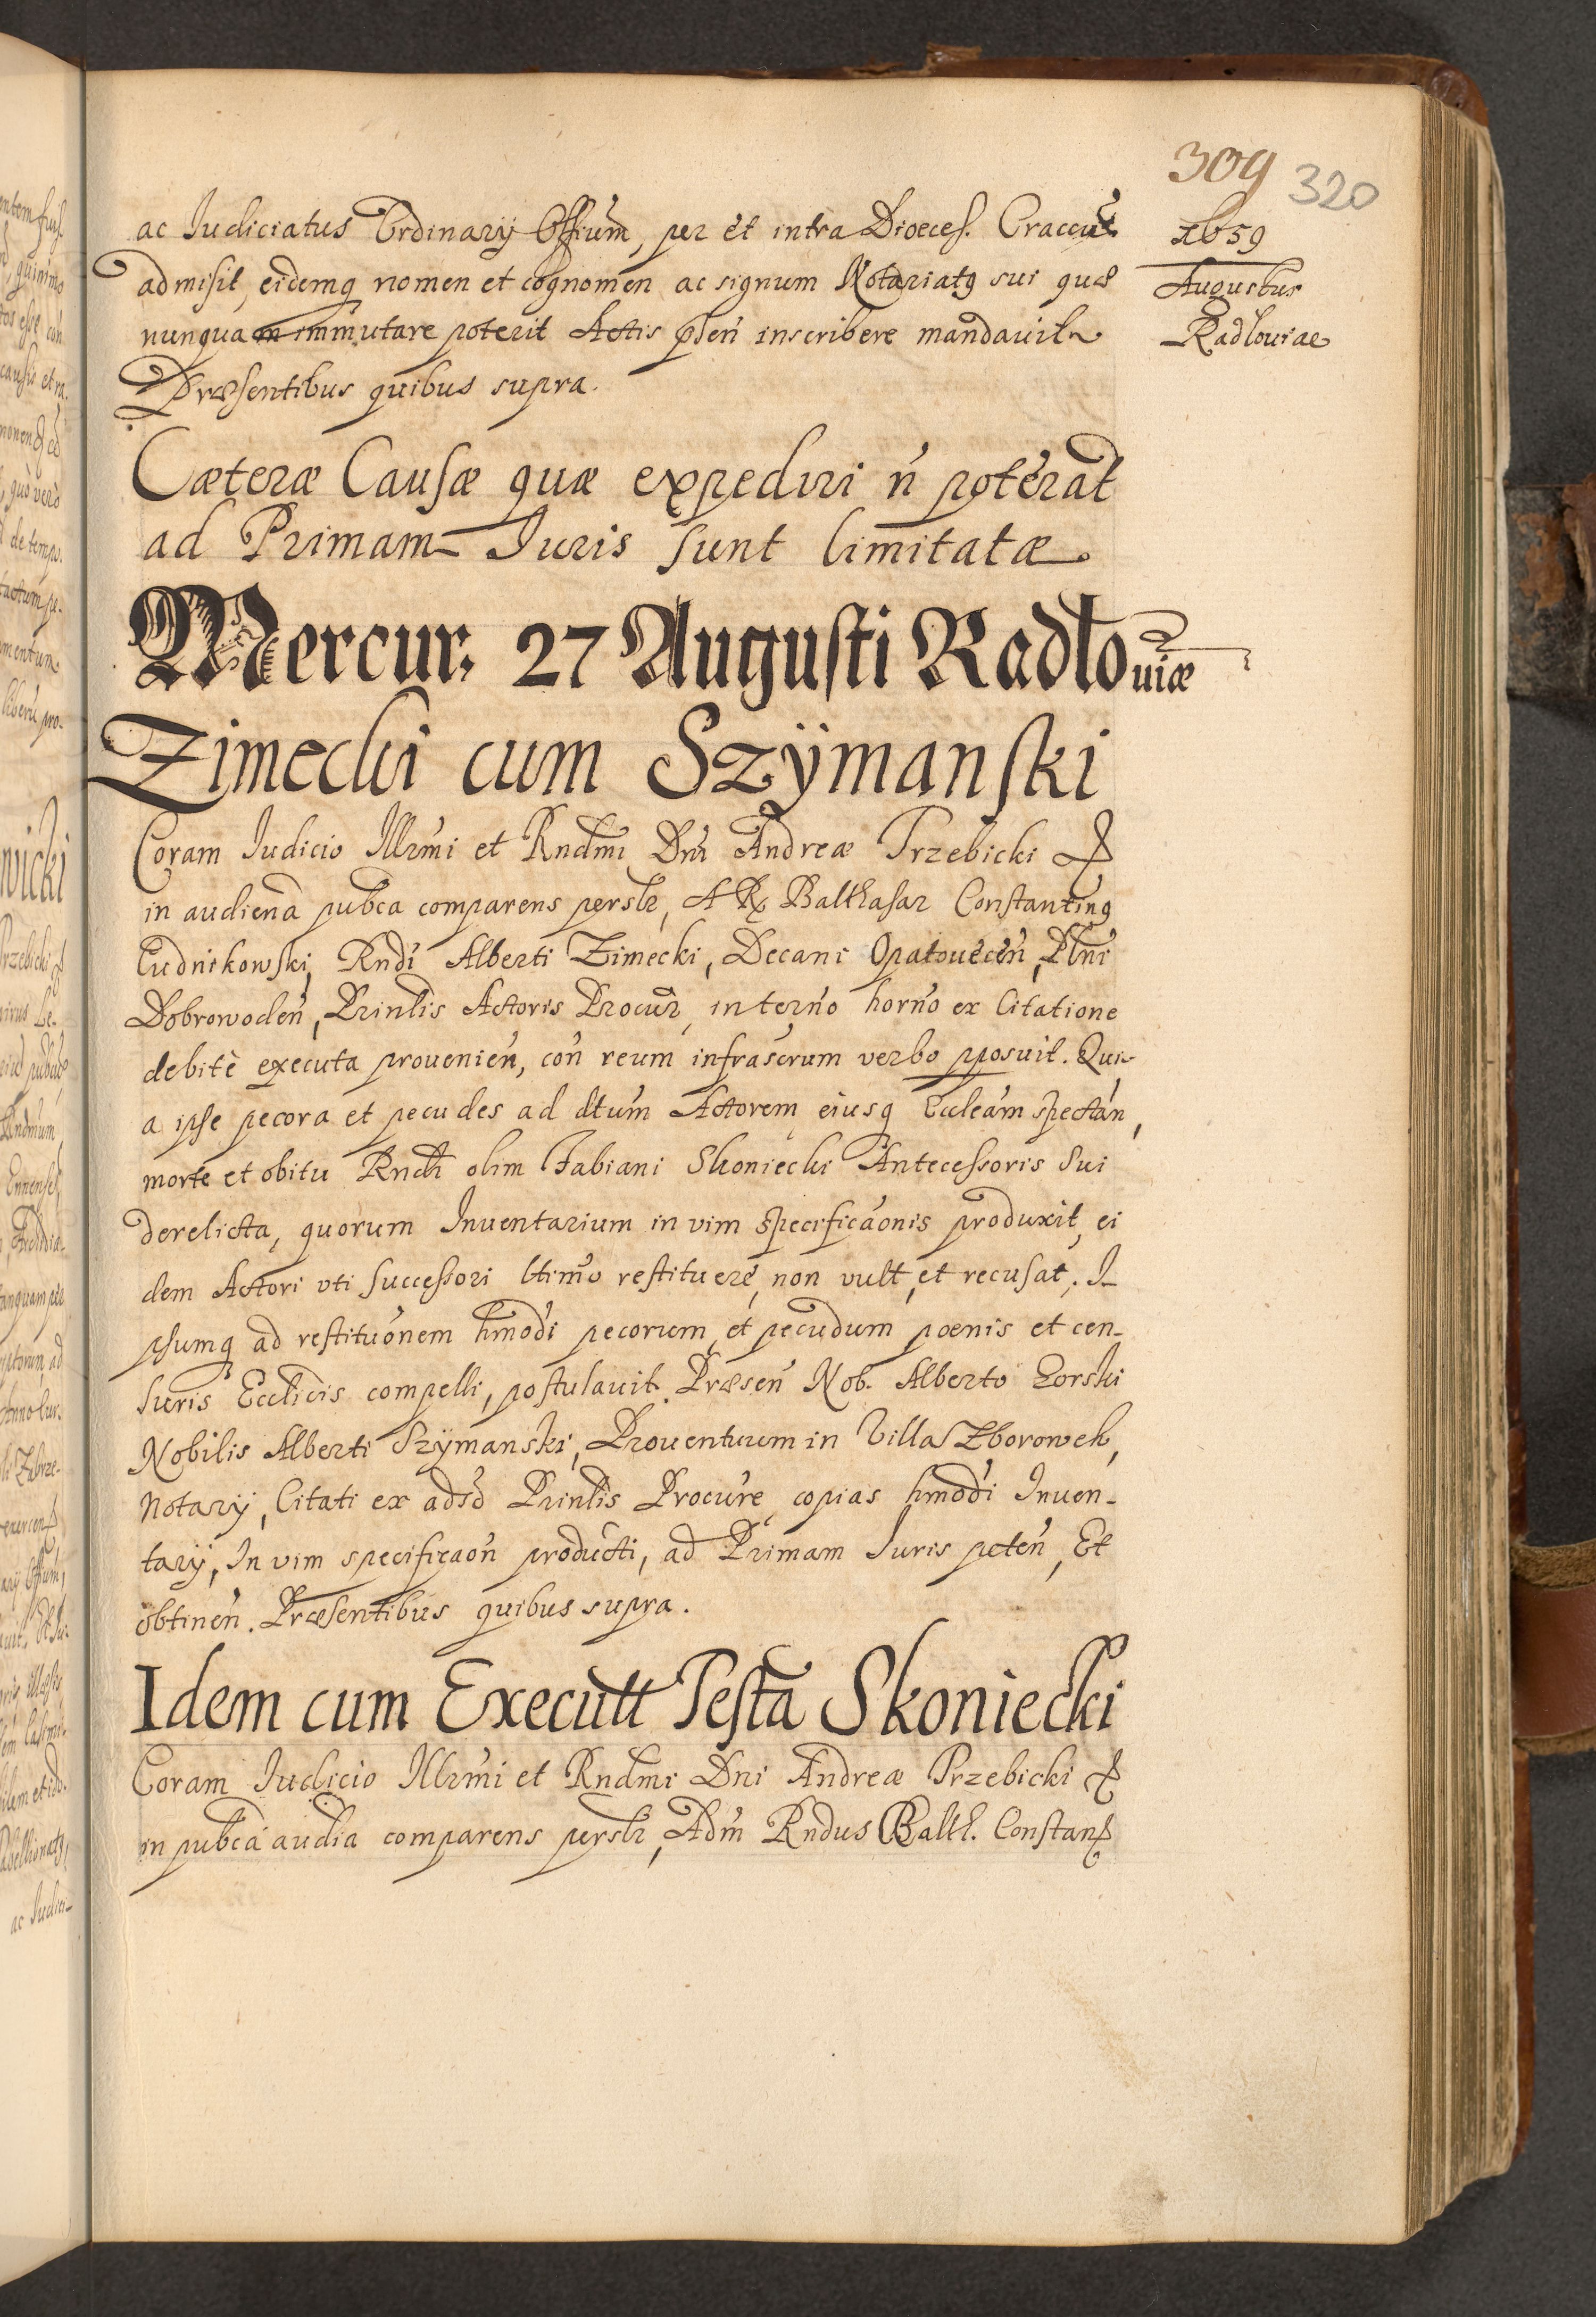 309 320
1659
Augustus
Radloviae
ac Judiciatus Ordinarÿ Offium, per et intra Dioeces. Craccu
admisit, eidemq nomen et cognomen ac signum Notariatg sui quæ
nunquam immutare poterit Actis pñsen inscribere mandavit
Præsentibus quibus supra.
Cæteræ Causæ quæ expediri ń poterat
ad Primam Juris sunt limitatæ
Mercur: 27 Augusti Radłoviæ
Zimecki cum Szÿmanski
Coram Judicio Illrmi et Rndmi Dni Andreæ Trzebicki
in audiena pubca comparens perslr, A R Balthasar Constanting
Cudnikowski, Rndi Alberti Zimecki, Decani Opatovecen, Plni
Dobrowoden, Prinlis Actoris Procur, in terno horno ex Citatione
debitè executa provenien, con reum infrascrum verbo pposuit. Qui-
a ipse pecora et pecudes ad dtum Actorem eiusq Eccleam spectan,
morte et obitu Rndi olim Fabiani Skoniecki Antecessoris Sui
derelicta, quorum Inventarium in vim specificaonis produxit, ei
dem Actori vti Successori ltimo restituere, non vult, et recusat, I-
psumq ad restituonem hmodi pecorum et pecudum poenis et cen-
suris Ecclicis compelli, postulavit. Præsen Nob. Alberto Gorski
Nobilis Alberti Szÿmanski, Proventuum in Villa Zborowek,
Notarÿ, Citati ex adso Prinlis Procure, copias hmodi Inven-
tarÿ, In vim specificaon producti, ad Primam Juris peten, Et
obtinen. Præsentibus quibus supra.
Idem cum Executt Testa Skoniecki
Coram Judicio Illrmi et Rndmi Dni Andreæ Trzebicki
in pubca audia comparens perslr, Adm Rndus Balth. Constan